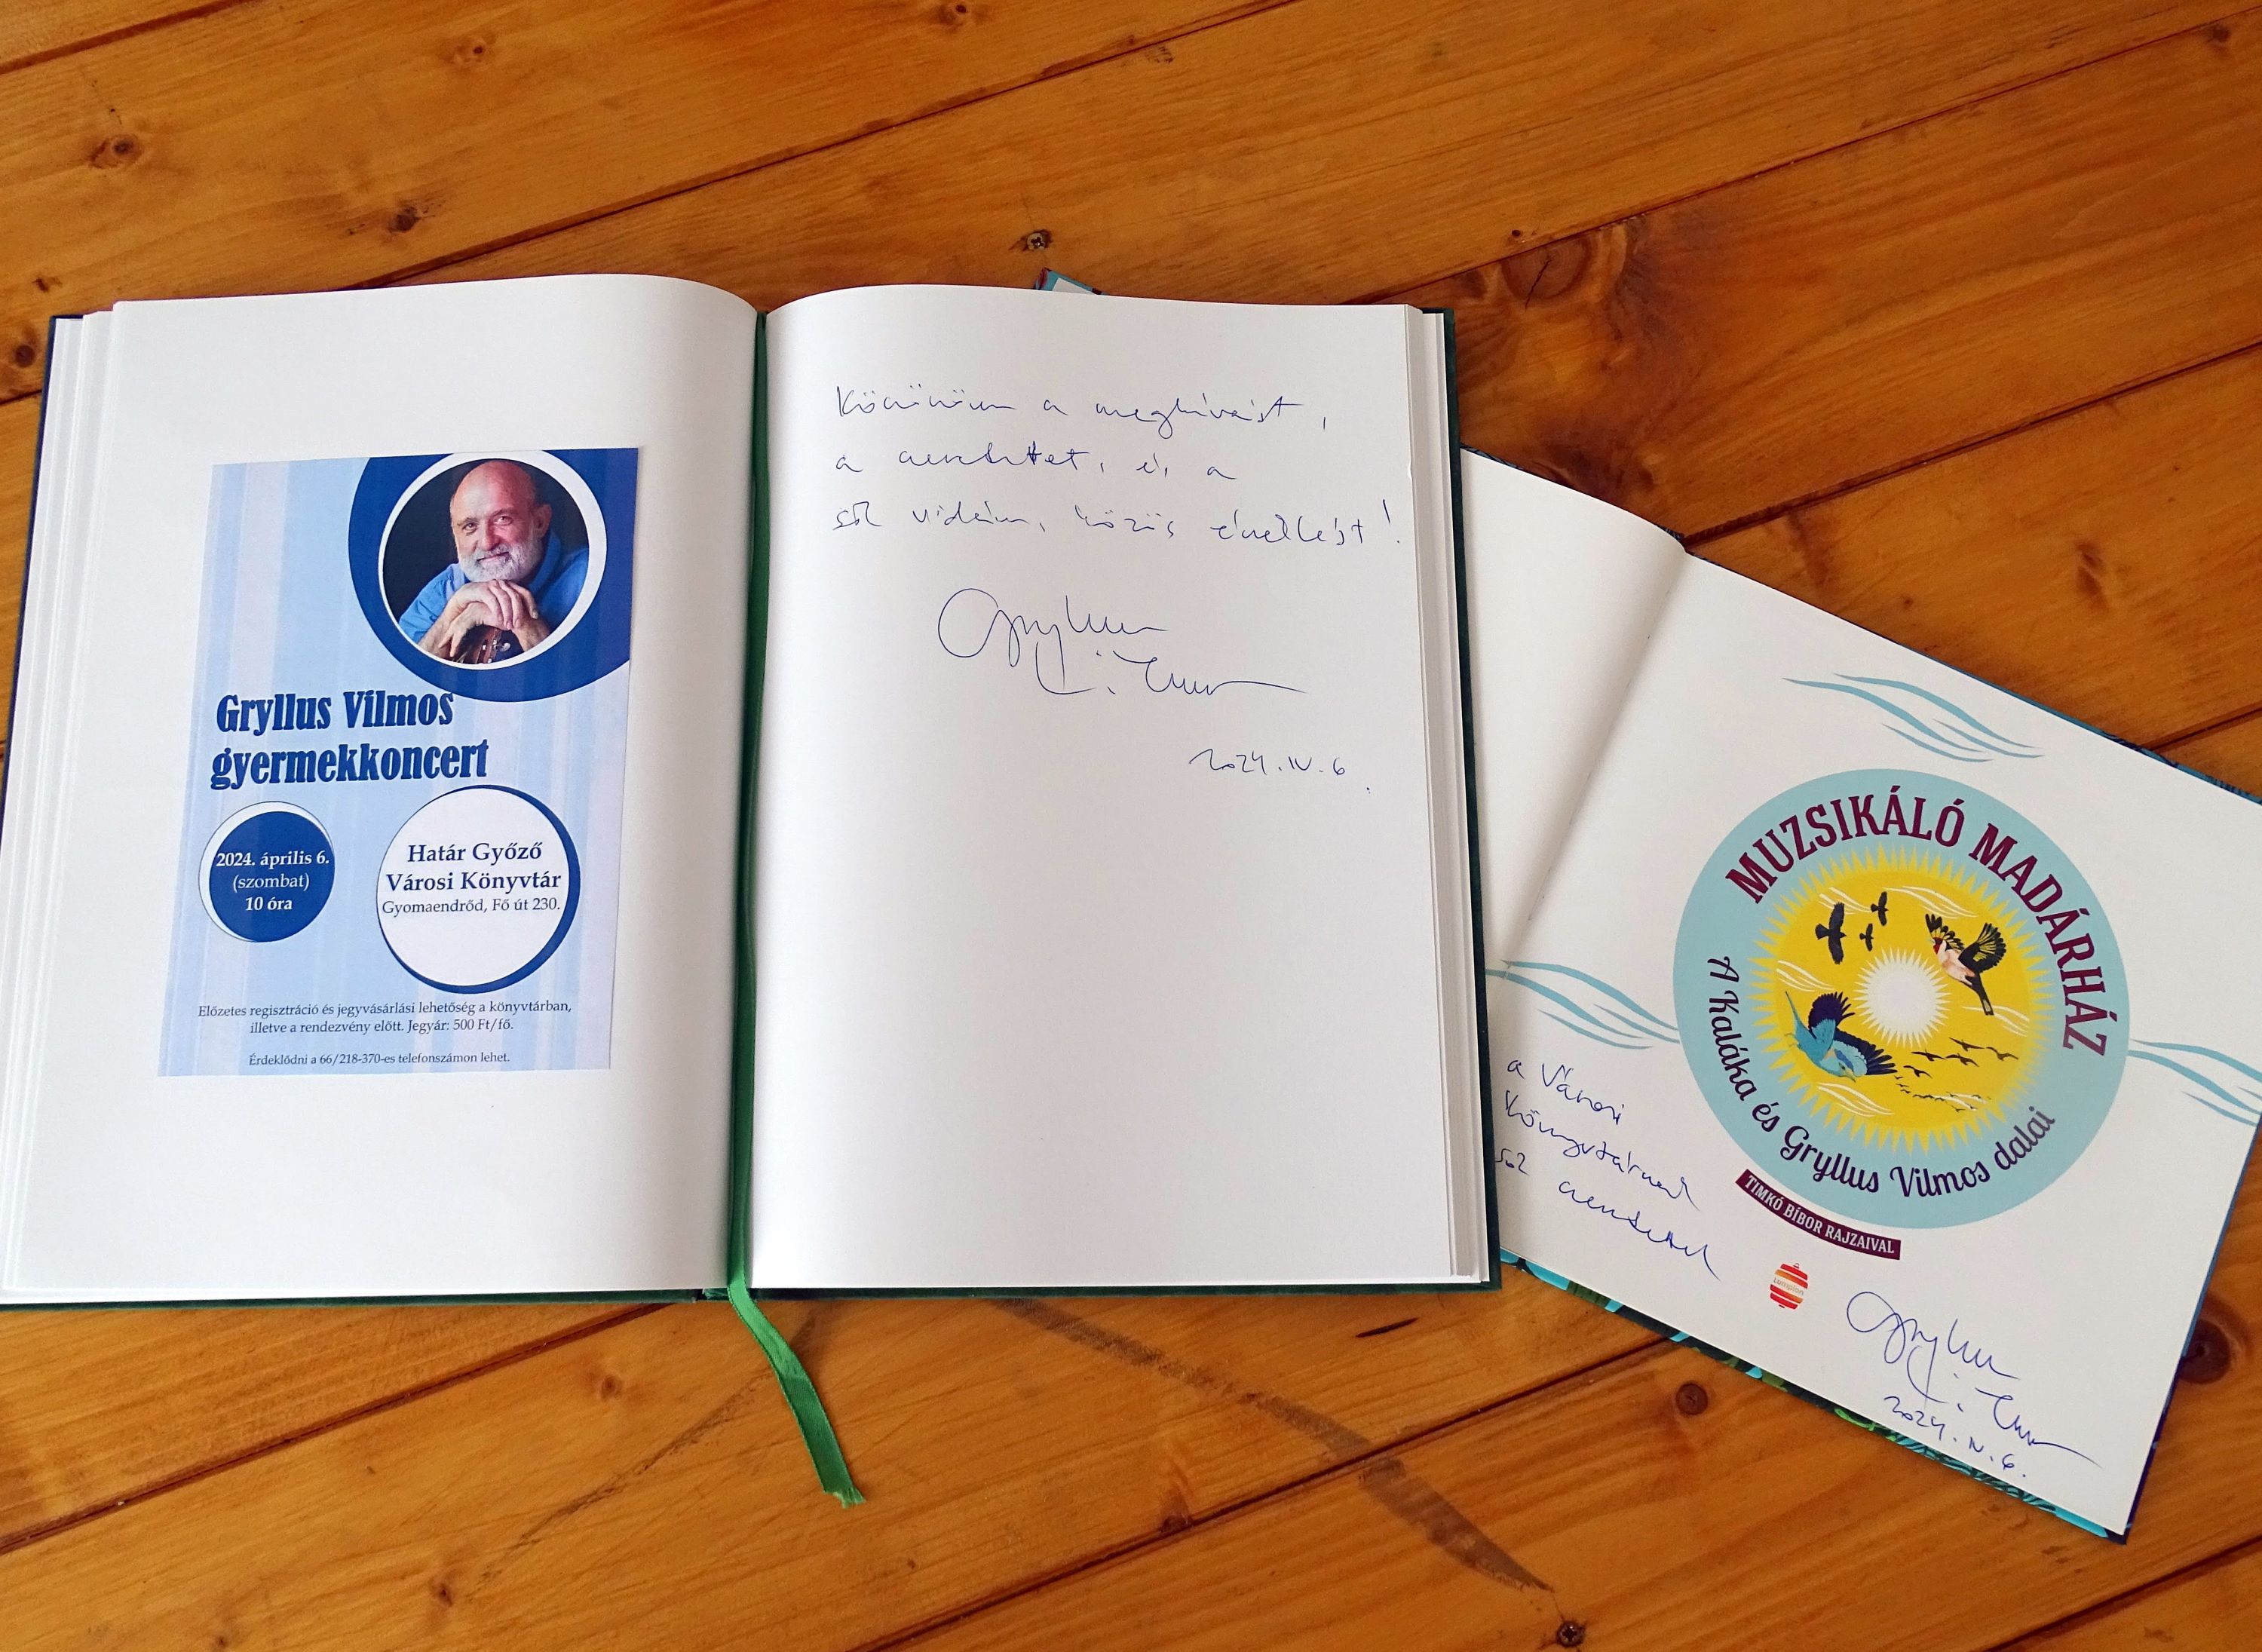 Gryllus Vilmos
gyermekkoncert
2024. április 6.
(szombat)
10 óra
Határ Győző
Városi Könyvtár
Gyomaendrőd, Fő út 230.
Előzetes regisztráció és jegyvásárlási lehetőség a könyvtárban,
illetve a rendezvény előtt. Jegyár: 500 Ft/fő.
Érdeklődni a 66/218-370-es telefonszámon lehet.
Köszönöm a meghívást,
a szeretetet, és a
sok vidám, közös éneklést!
Gryllus
Vilmos
2024.IV.6.
MUZSIKÁLÓ MADÁRHÁZ
A Kaláka és Gryllus Vilmos dalai
TIMKÓ BÍBOR RAJZAIVAL
a Városi
Könyvtárnak
sok szeretettel
Gryllus
Vilmos
2024.IV.6.